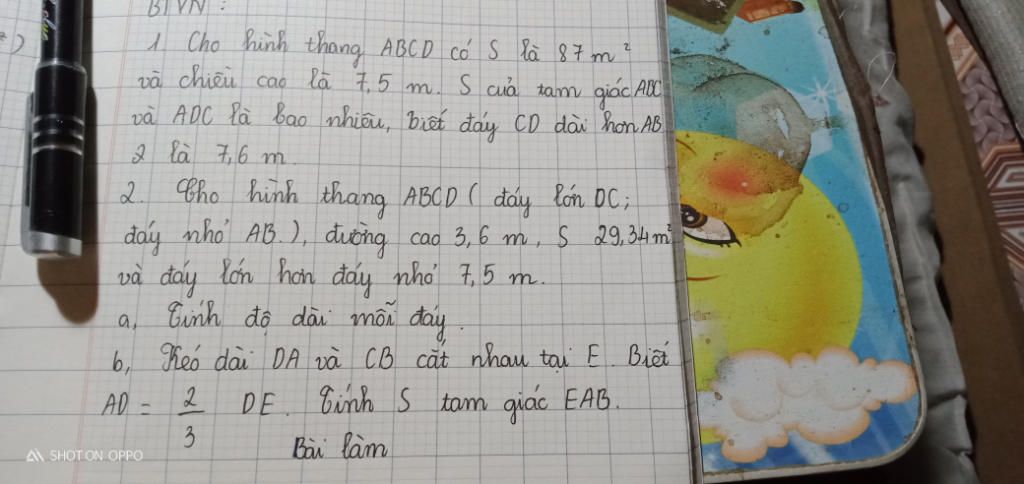 BTVN :
1. Cho hình thang ABCD có S là 87 m²
và chiều cao là 7,5 m. S của tam giác ADC
và ADC là bao nhiêu, biết đáy CD dài hơn AB
2 là 7,6 m.
2. Cho hình thang ABCD ( đáy lớn DC;
đáy nhỏ AB.), đường cao 3,6 m, S 29,34 m²
và đáy lớn hơn đáy nhỏ 7,5 m.
a, Tính độ dài mỗi đáy.
b, Kéo dài DA và CB cắt nhau tại E. Biết
AD = 2/3 DE. Tính S tam giác EAB.
Bài làm
SHOT ON OPPO